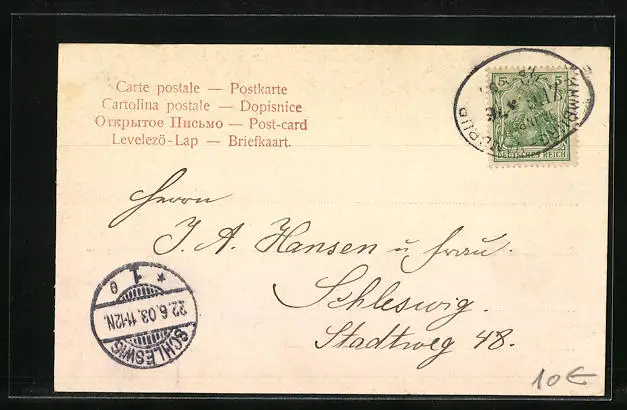 Carte postale — Postkarte
Cartolina postale — Dopisnice
Открытое Письмо — Post-card
Levelező-Lap — Briefkaart.
5 5
DEUTSCHES REICH
Herrn
J. A. Hansen u. Frau.
Schleswig.
Stadtweg 48.
* 1 θ
22.6.03.11-12N.
SCHLESWIG
10€